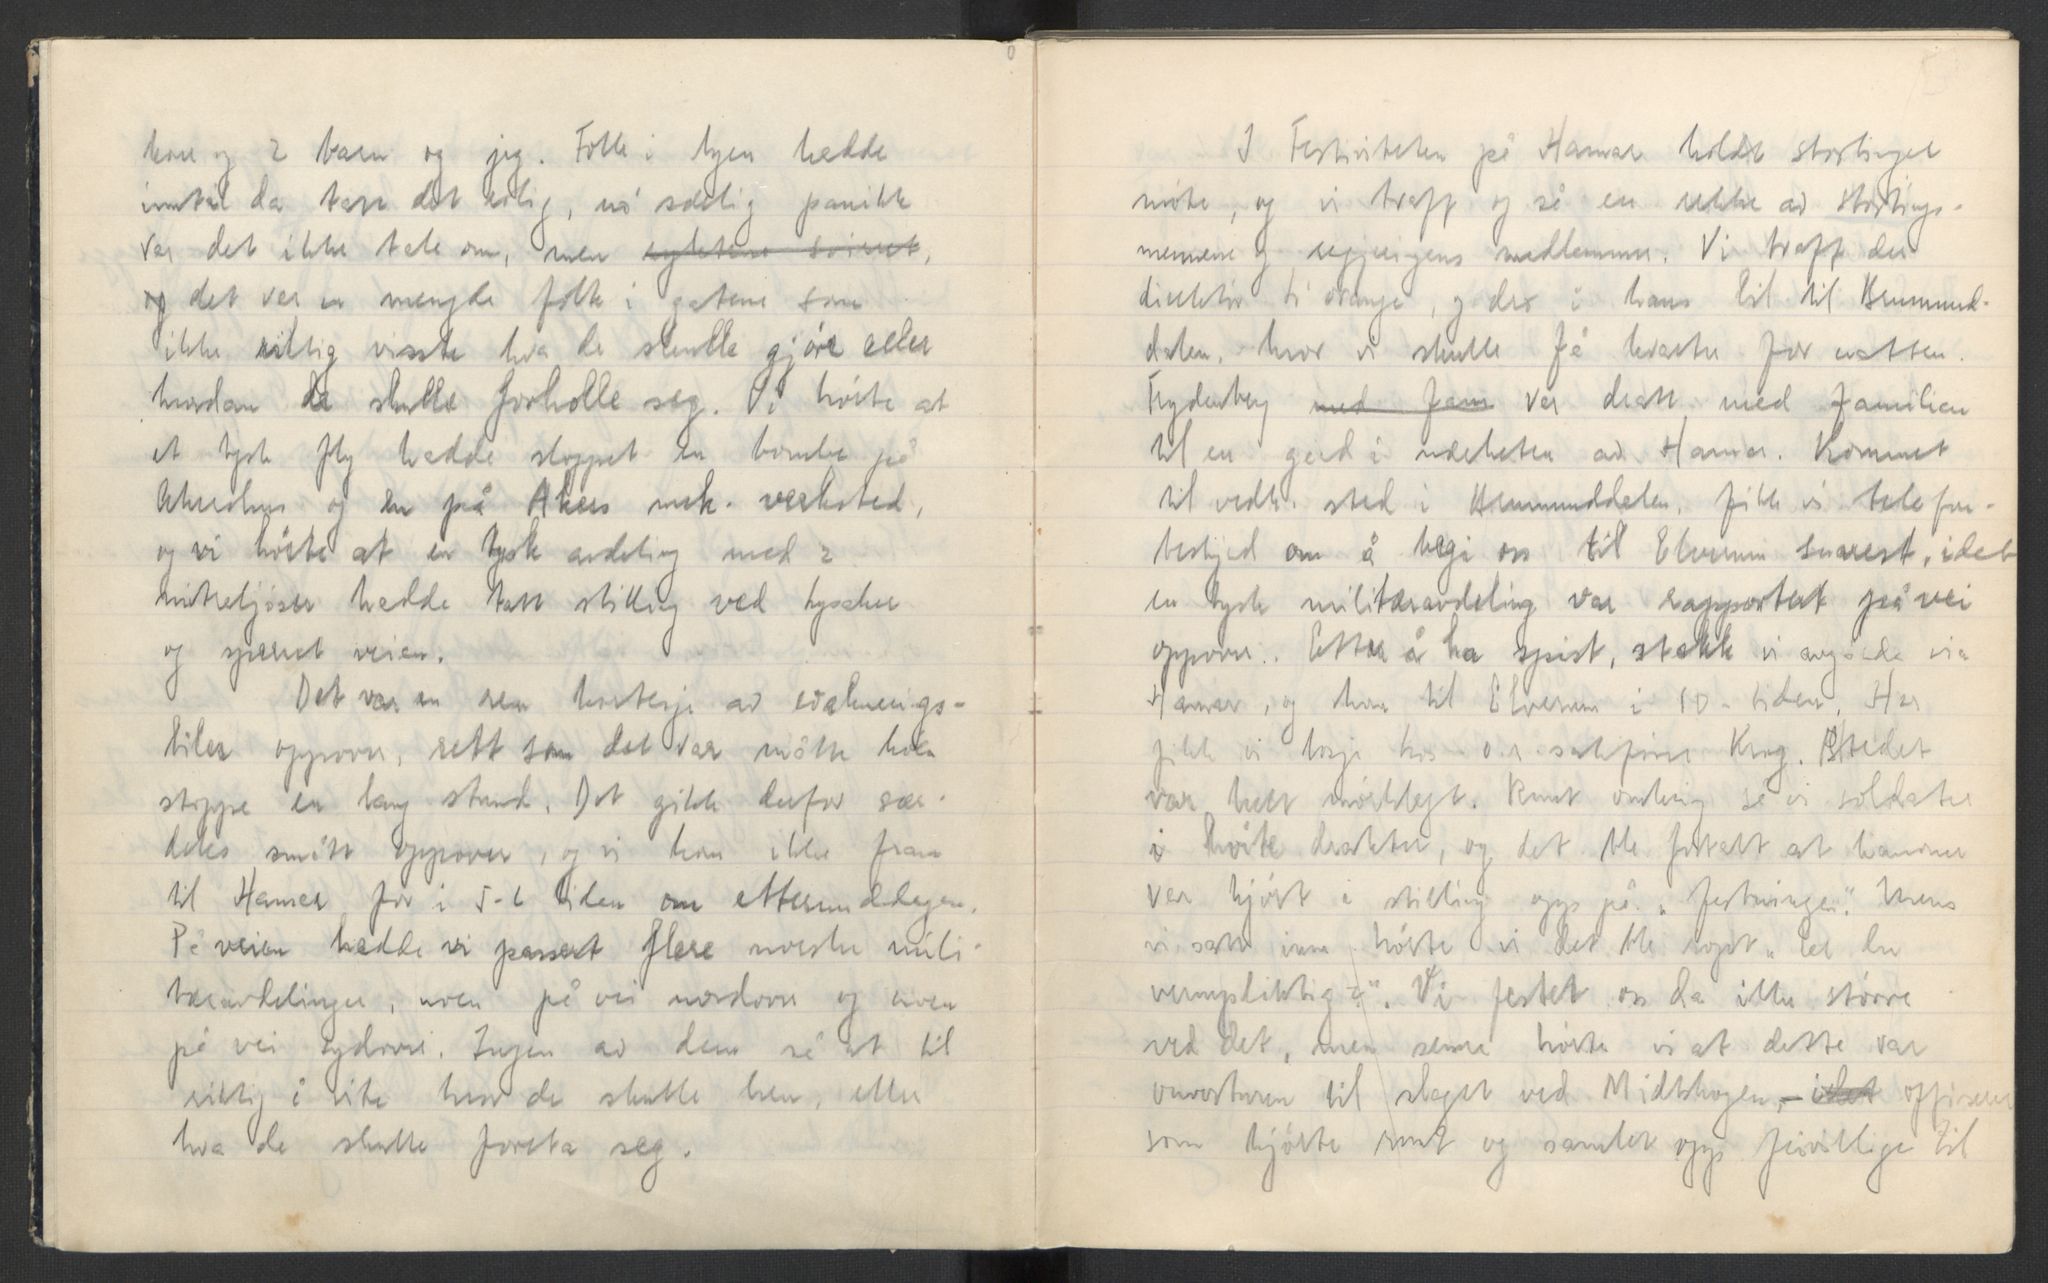 kone og 2 barn og jeg. Folk i byen hadde
inntil da tatt det rolig, nå særlig panikk
var det ikke tale om, men ryktene svirret,
og det var en mengde folk i gatene som
ikke riktig visste hva de skulle gjøre eller
hvordan de skulle forholle seg. Vi hørte at
et tysk fly hadde sloppet en bombe på
Akershus og en på Akers mek. verksted,
og vi hørte at en tysk avdeling med 2
mitreljøser hadde tatt stilling ved
og sperret veien.
Det var en ren kortesje av evakuerings-
biler oppover, rett som det var måtte hele
stoppe en lang stund. Det gikk derfor sær-
deles smått oppover, og vi kom ikke fram
til Hamar før i 5-6 tiden om ettermiddagen.
På veien hadde vi passert flere norske mili-
tæravdelinger, noen på vei nordover og noen
på vei sydover. Ingen av dem så ut til
riktig å vite hvor de skulle hen, eller
hva de skulle foreta seg.
5
I Festiviteten på Hamar holdt stortinget
møte, og vi traff og så en rekke av stortings-
mennene og regjeringens medlemmer. Vi traff der
direktør, og dro i hans bil til Brummund-
dalen, hvor vi skulle få kvarter for natten.
Frydenberg med fam var dratt med familien
til en gård i nærheten av Hamar. Kommet
til vedk. sted i Brummunddalen, fikk vi telefon-
beskjed om å begi oss til Elverum snarest, idet
en tysk militæravdeling var rapportert på vei
oppover. Etter å ha spist, stakk vi avgårde via
Hamar, og kom til Elverum i 10-tiden. Her
fikk vi losji hos o.r. sakfører Krog. Stedet
var helt mørklagt. Rundt omkring så vi soldater
i hvite drakter, og det ble fortalt at kanoner
var kjørt i stilling opp på „festningen". Mens
vi satt inne hørte vi det ble ropt „Er du
vernepliktig?". Vi festet oss da ikke større
ved det, men senere hørte vi at dette var
ouverturen til slaget ved Midtskogen, – idet offiserer
som kjørte rundt og samlet opp frivillige til